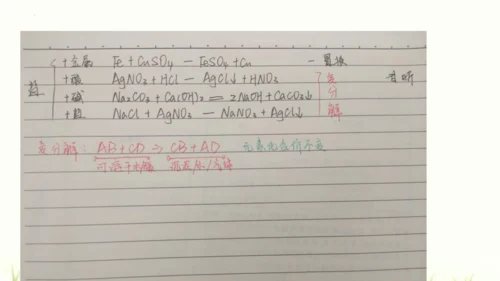 盐
+金属 Fe + CuSO₄ — FeSO₄ + Cu — 置换
+酸 AgNO₃ + HCl — AgCl↓ + HNO₃
+碱 Na₂CO₃ + Ca(OH)₂ = 2NaOH + CaCO₃↓
+盐 NaCl + AgNO₃ — NaNO₃ + AgCl↓
复分解
复分解: AB + CD ⇒ CB + AD 元素化合价不变
可溶于水/酸